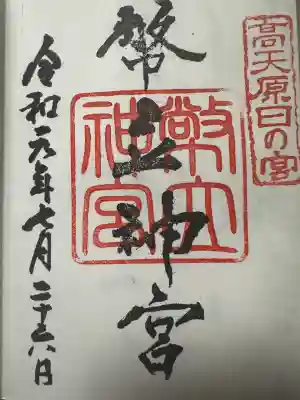 高天原日の宮
幣立神宮
幣立神宮
令和元年七月二十六日